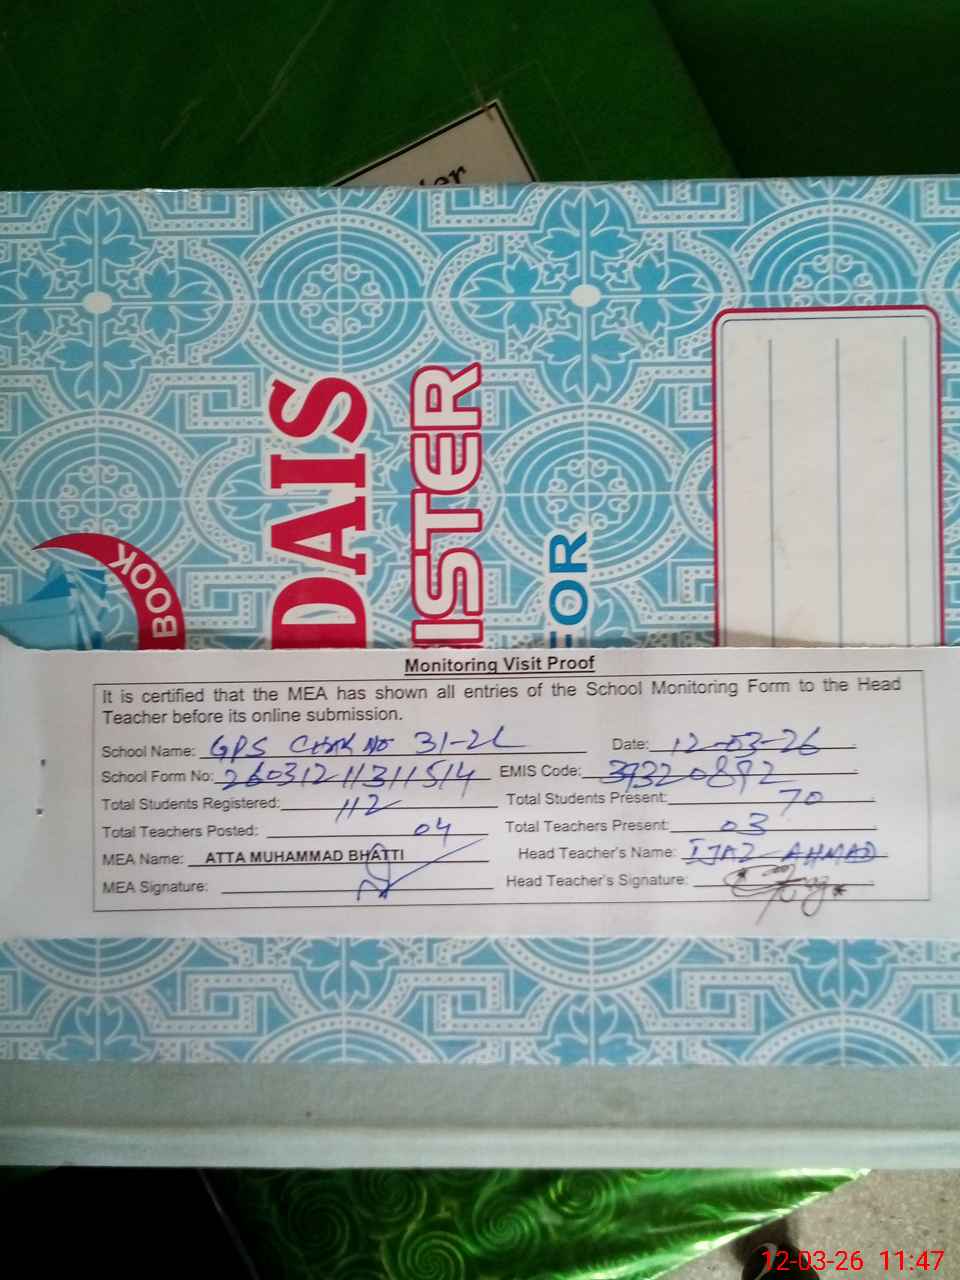 BOOK
DAIS
ISTER
FOR
Monitoring Visit Proof
It is certified that the MEA has shown all entries of the School Monitoring Form to the Head
Teacher before its online submission.
School Name: GPS CHAK NO 31-2L Date: 12-03-26
School Form No: 26031211311514 EMIS Code: 39320892
Total Students Registered: 112 Total Students Present: 70
Total Teachers Posted: 04 Total Teachers Present: 03
MEA Name: ATTA MUHAMMAD BHATTI Head Teacher's Name: IJAZ AHMAD
MEA Signature: Head Teacher's Signature:
12-03-26 11:47